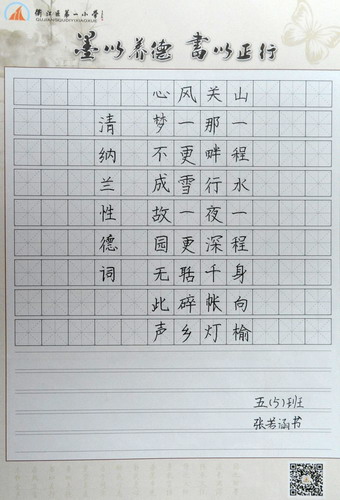 衢江区第一小学
墨以养德 書以正行
山一程水一程身向榆
关那畔行夜深千帐灯
风一更雪一更聒碎乡
心梦不成故园无此声
清纳兰性德词
五(5)班
张若涵书